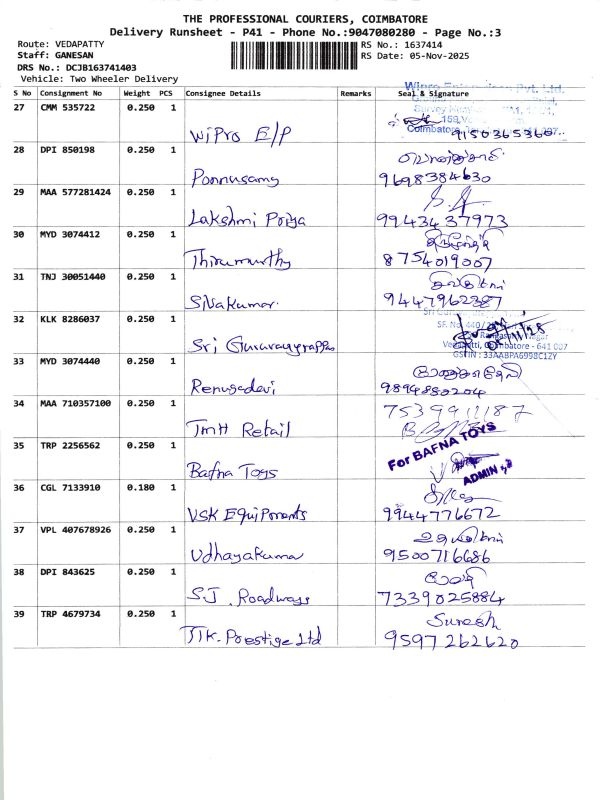 THE PROFESSIONAL COURIERS, COIMBATORE
Delivery Runsheet - P41 - Phone No.:9047080280 - Page No.:3
Route: VEDAPATTY
RS No.: 1637414
Staff: GANESAN
RS Date: 05-Nov-2025
DRS No.: DCJB163741403
Vehicle: Two Wheeler Delivery
S No Consignment No Weight PCS Consignee Details Remarks Seal & Signature
27 CMM 535722 0.250 1
Wipro E/P
28 DPI 850198 0.250 1
Ponnusamy 9698384630
29 MAA 577281424 0.250 1
Lakshmi Priya 9943437973
30 MYD 3074412 0.250 1
Thirumurthy 8754019007
31 TNJ 30051440 0.250 1
Sivakumar 9447962387
32 KLK 8286037 0.250 1
Vedapatti, Coimbatore - 641 007
GSTIN : 33AABPA6998C1ZY
33 MYD 3074440 0.250 1
Renugadevi 9894880204
34 MAA 710357100 0.250 1
TMH Retail
35 TRP 2256562 0.250 1
For BAFNA TOYS
Bafna Toys
ADMIN
36 CGL 7133910 0.180 1
VSK Equipments 9944776672
37 VPL 407678926 0.250 1
Udhayakumar 9500716686
38 DPI 843625 0.250 1
S.J. Roadways 7339025884
39 TRP 4679734 0.250 1
Suresh
TTK. Prestige Ltd 9597262620